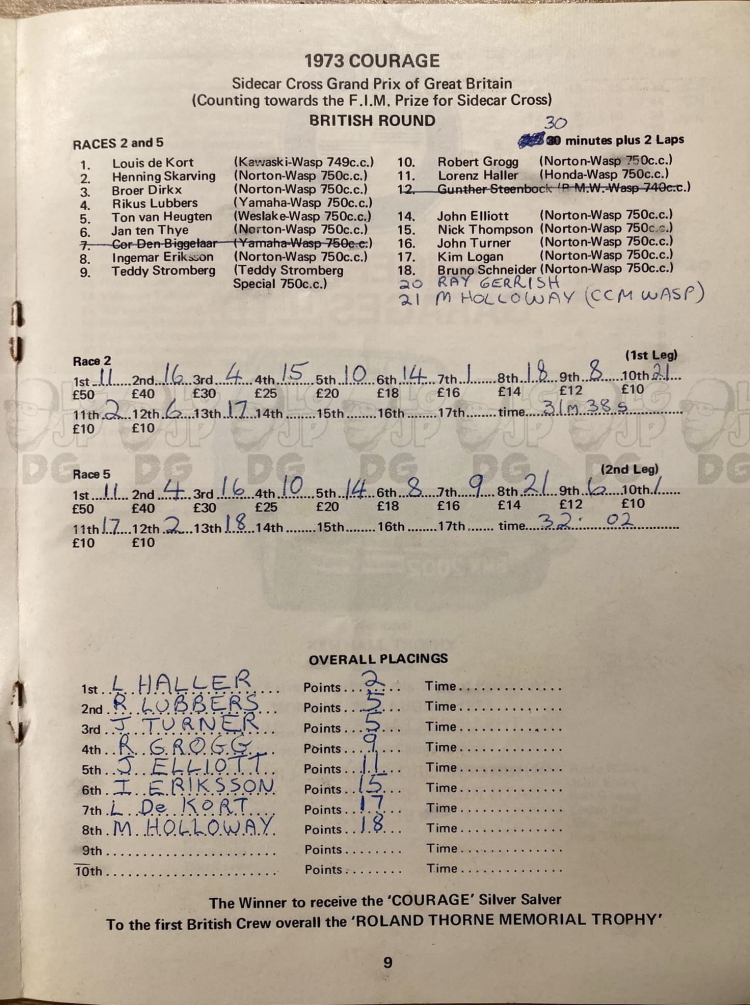 1973 COURAGE
Sidecar Cross Grand Prix of Great Britain
(Counting towards the F.I.M. Prize for Sidecar Cross)
BRITISH ROUND
30
RACES 2 and 5 30 minutes plus 2 Laps
1. Louis de Kort (Kawaski-Wasp 749c.c.) 10. Robert Grogg (Norton-Wasp 750c.c.)
2. Henning Skarving (Norton-Wasp 750c.c.) 11. Lorenz Haller (Honda-Wasp 750c.c.)
3. Broer Dirkx (Norton-Wasp 750c.c.) 12. Gunther Steenbock (B.M.W.-Wasp 740c.c.)
4. Rikus Lubbers (Yamaha-Wasp 750c.c.)
5. Ton van Heugten (Weslake-Wasp 750c.c.) 14. John Elliott (Norton-Wasp 750c.c.)
6. Jan ten Thye (Norton-Wasp 750c.c.) 15. Nick Thompson (Norton-Wasp 750c.c.)
7. Cor Den Biggelaar (Yamaha-Wasp 750c.c.) 16. John Turner (Norton-Wasp 750c.c.)
8. Ingemar Eriksson (Norton-Wasp 750c.c.) 17. Kim Logan (Norton-Wasp 750c.c.)
9. Teddy Stromberg (Teddy Stromberg 18. Bruno Schneider (Norton-Wasp 750c.c.)
Special 750c.c.) 20 RAY GERRISH
21 M HOLLOWAY (CCM WASP)
Race 2 (1st Leg)
1st 11 2nd 16 3rd 4 4th 15 5th 10 6th 14 7th 1 8th 18 9th 8 10th 21
£50 £40 £30 £25 £20 £18 £16 £14 £12 £10
11th 2 12th 6 13th 17 14th 15th 16th 17th time 31m 38s
£10 £10
HG JP DG
Race 5 (2nd Leg)
1st 11 2nd 4 3rd 16 4th 10 5th 14 6th 8 7th 9 8th 21 9th 6 10th 1
£50 £40 £30 £25 £20 £18 £16 £14 £12 £10
11th 17 12th 2 13th 18 14th 15th 16th 17th time 32. 02
£10 £10
OVERALL PLACINGS
1st L HALLER Points 2 Time
2nd R LUBBERS Points 5 Time
3rd J TURNER Points 5 Time
4th R GROGG Points 9 Time
5th J ELLIOTT Points 11 Time
6th I ERIKSSON Points 15 Time
7th L De KORT Points 17 Time
8th M HOLLOWAY Points 18 Time
9th Points Time
10th Points Time
The Winner to receive the 'COURAGE' Silver Salver
To the first British Crew overall the 'ROLAND THORNE MEMORIAL TROPHY'
9